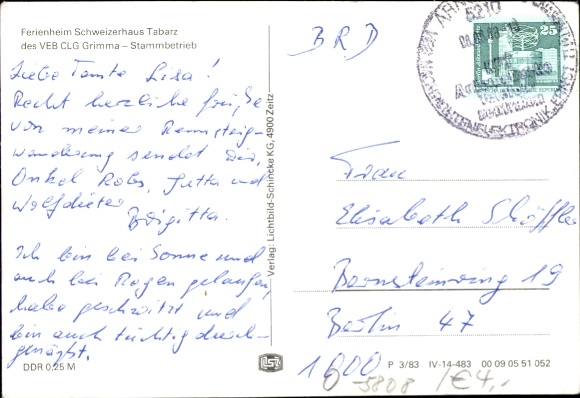 Ferienheim Schweizerhaus Tabarz
des VEB CLG Grimma – Stammbetrieb
Liebe Tante Lisa!
Recht herzliche Grüße
von meiner Rennsteig-
wanderung sendet Dir,
Onkel Robs, Jutta und
Wolfdieter
Brigitta.
Ich bin bei Sonne und
auch bei Regen gelaufen,
habe geschwitzt und
bin auch tüchtig durch-
genäßt.
DDR 0,25 M
Verlag: Lichtbild-Schincke KG, 4900 Zeitz
BRD
5210
25
Frau
Elisabeth Schöffler
Bernsteinring 19
Berlin 47
1000
P 3/83 IV-14-483 00 09 05 51 052
5808 / € 4,-